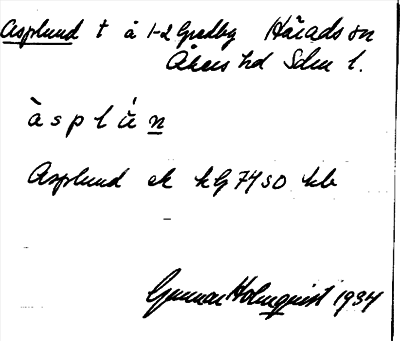 Asplund t å 1-2 Gredby Härads sn
Åkers hd Sdm l.
àsplún
Asplund ek kG 7450 hb
Gunnar Holmquist 1934